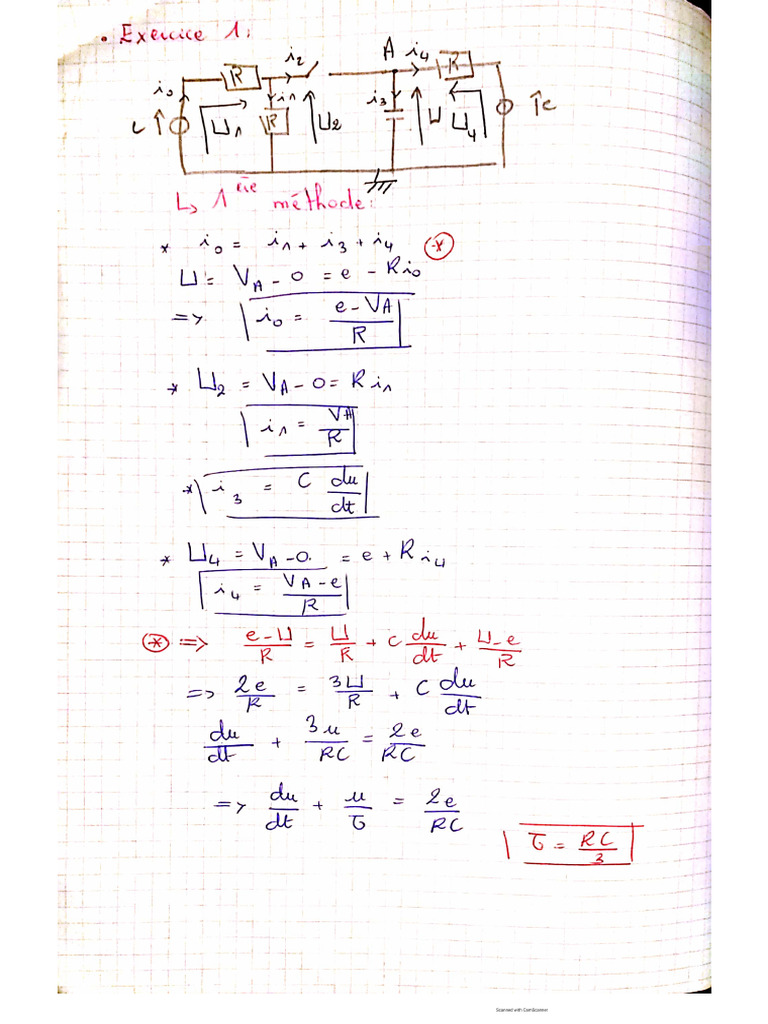 • Exercice 1:
A i4
i2
R
R
i0
i1
i3
e
U1
R
U2
U
U4
e
↳ 1ère méthode:
* i0 = i1 + i3 + i4 (*)
U = VA - 0 = e - Ri0
=> i0 = (e - VA)/R
* U2 = VA - 0 = Ri1
i1 = VA/R
* i3 = C du/dt
* U4 = VA - 0. = e + Ri4
i4 = (VA - e)/R
(*) => (e - U)/R = U/R + C du/dt + (U - e)/R
=> 2e/R = 3U/R + C du/dt
du/dt + 3u/RC = 2e/RC
=> du/dt + u/τ = 2e/RC
τ = RC/3
Scanned with CamScanner